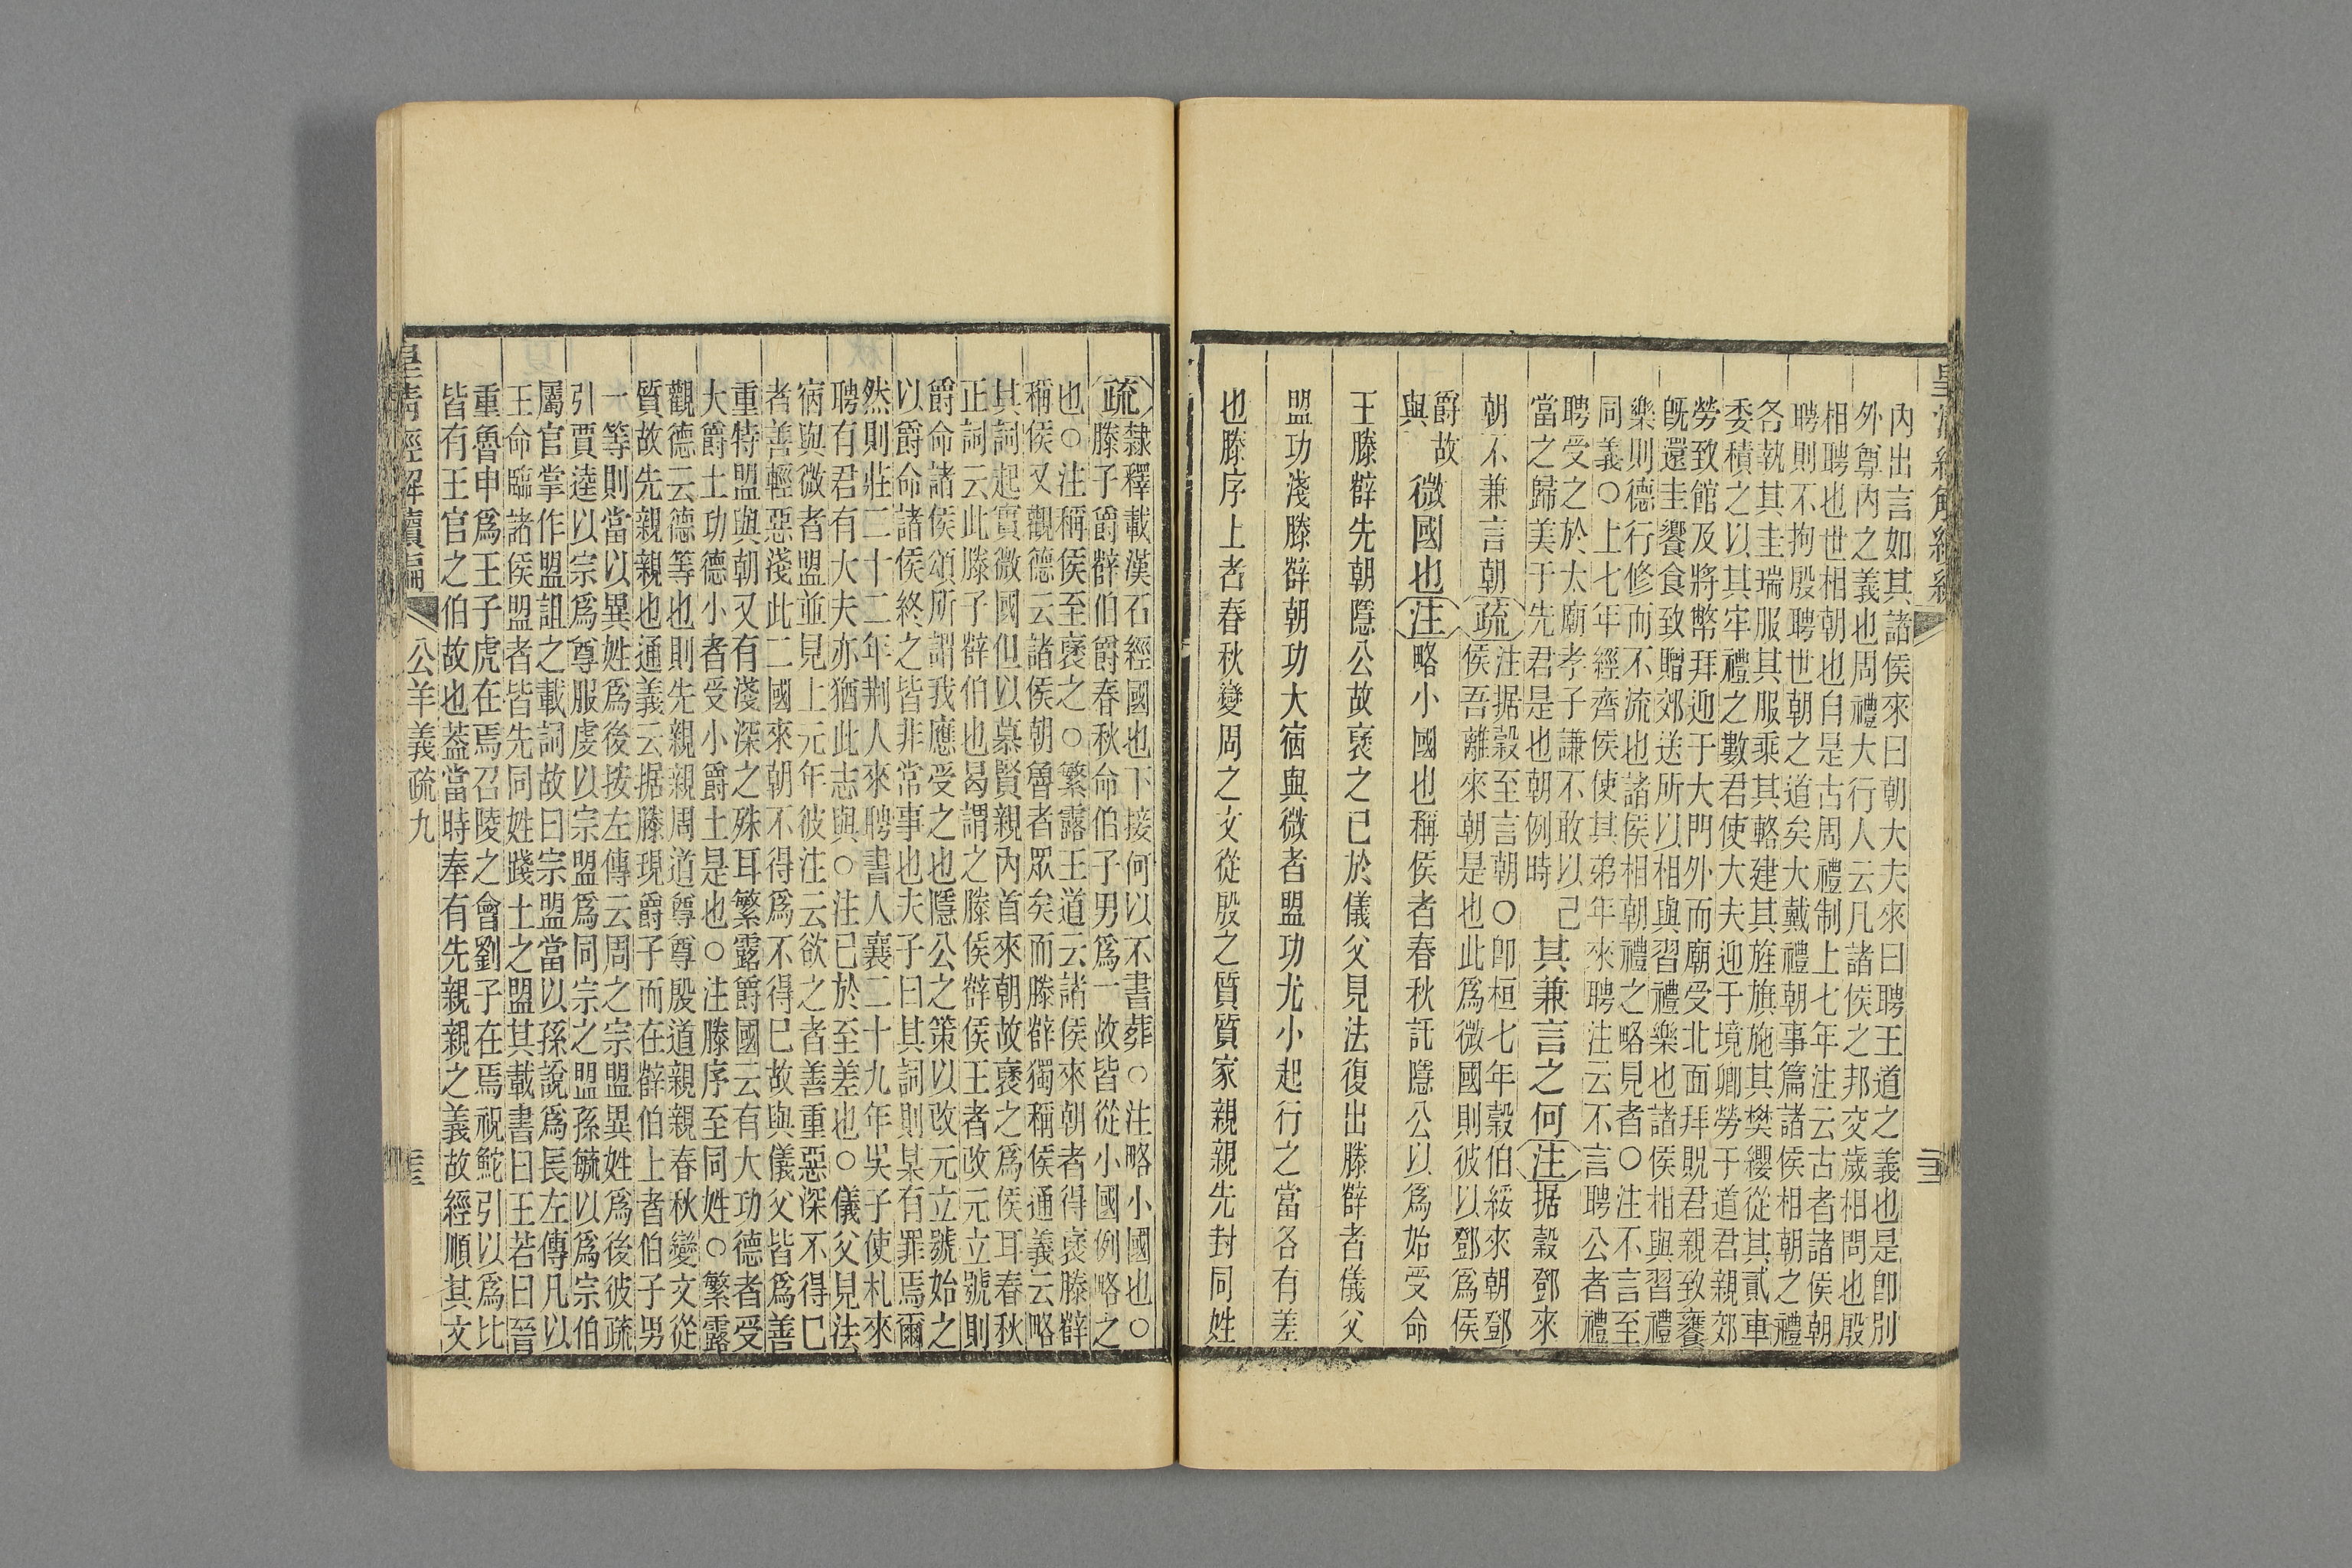 皇清經解續編
內出言如其諸侯來曰朝大夫來曰聘王道之義也是卽別
外尊內之義也周禮大行人云凡諸侯之邦交歲相問也殷
相聘也世相朝也自是古周禮制上七年注云古者諸侯朝
聘則不拘殷聘世朝之道矣大戴禮朝事篇諸侯相朝之禮
各執其圭瑞服其服乘其輅建其旌旗施其樊纓從其貳車
委積之以其牢禮之數君使大夫迎于境卿勞于道君親郊
勞致館及將幣拜迎于大門外而廟受北面拜貺君親致饔
旣還圭饗食致贈郊送所以相與習禮樂也諸侯相與習禮
樂則德行修而不流也諸侯相朝禮之略見者○注不言至
同義○上七年經齊侯使其弟年來聘注云不言聘公者禮
聘受之於太廟孝子謙不敢以己
當之歸美于先君是也朝例時
其兼言之何注据穀鄧來
朝不兼言朝疏注据穀至言朝○卽桓七年穀伯綏來朝鄧
侯吾離來朝是也此為微國則彼以鄧為侯
爵故
與
微國也注略小國也稱侯者春秋託隱公以爲始受命
王滕薛先朝隱公故褒之已於儀父見法復出滕薛者儀父
盟功淺滕薛朝功大宿與微者盟功尤小起行之當各有差
也滕序上者春秋變周之文從殷之質質家親親先封同姓
疏隸釋載漢石經國也下接何以不書葬○注略小國也○
滕子爵薛伯爵春秋命伯子男爲一故皆從小國例略之
也○注稱侯至褒之○繁露王道云諸侯來朝者得褒滕薛
稱侯又觀德云諸侯朝魯者眾矣而滕薛獨稱侯通義云略
其詞起實微國但以慕賢親內首來朝故褒之爲侯耳春秋
正詞云此滕子薛伯也曷謂之滕侯薛侯王者改元立號則
爵命諸侯頌所謂我應受之也隱公之策以改元立號始之
以爵命諸侯終之皆非常事也夫子曰其詞則某有罪焉爾
然則莊二十二年荆人來聘書人襄二十九年吳子使札來
聘有君有大夫亦猶此志與○注已於至差也○儀父見法
宿與微者盟並見上元年彼注云欲之者善重惡深不得已
者善輕惡淺此二國來朝不得爲不得已故與儀父皆爲善
重特盟與朝又有淺深之殊耳繁露爵國云有大功德者受
大爵土功德小者受小爵土是也○注滕序至同姓○繁露
觀德云德等也則先親親周道尊尊殷道親親春秋變文從
質故先親親也通義云据滕現爵子而在薛伯上者伯子男
一等則當以異姓爲後按左傳云周之宗盟異姓爲後彼疏
引賈逵以宗爲尊服虔以宗盟爲同宗之盟孫毓以爲宗伯
屬官掌作盟詛之載詞故曰宗盟當以孫說爲長左傳凡以
王命臨諸侯盟者皆先同姓踐土之盟其載書曰王若曰晉
重魯申爲王子虎在焉召陵之會劉子在焉祝鮀引以爲比
皆有王官之伯故也葢當時奉有先親親之義故經順其文
皇清經解續編
公羊義疏九